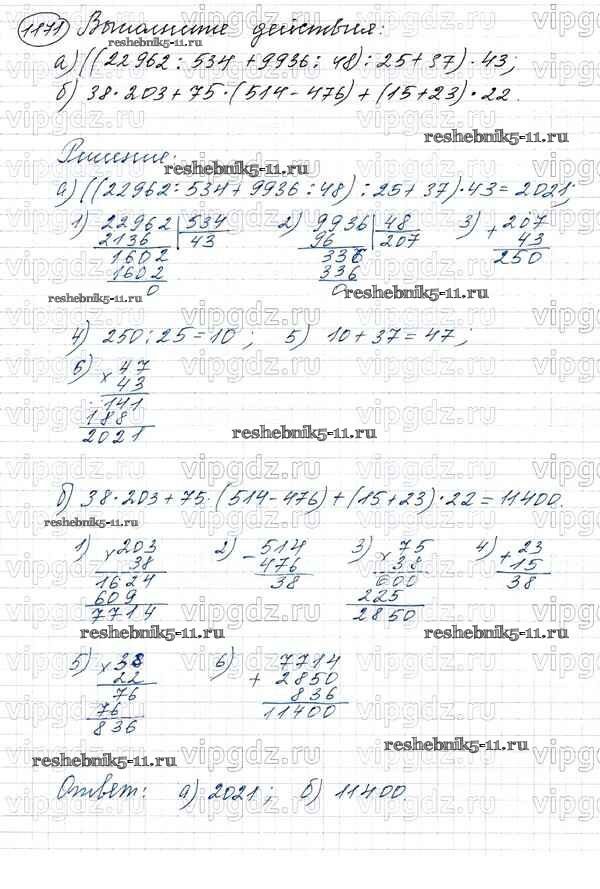 1171 Выполните действия:
reshebnik5-11.ru
а) ((22962 : 534 + 9936 : 48) : 25 + 37) · 43;
б) 38 · 203 + 75 · (514 - 476) + (15 + 23) · 22.
reshebnik5-11.ru
Решение:
reshebnik5-11.ru
а) ((22962 : 534 + 9936 : 48) : 25 + 37) · 43 = 2021;
1) 22962 | 534 2) 9936 | 48 3) + 207
2136 | 43 96 | 207 43
1602 336 250
1602 336
0 0
reshebnik5-11.ru reshebnik5-11.ru
4) 250 : 25 = 10; 5) 10 + 37 = 47;
6) × 47
43
141
188
2021
reshebnik5-11.ru
б) 38 · 203 + 75 · (514 - 476) + (15 + 23) · 22 = 11400.
reshebnik5-11.ru
1) × 203 2) - 514 3) × 75 4) + 23
38 476 38 15
1624 38 600 38
609 225
7714 2850
reshebnik5-11.ru reshebnik5-11.ru
5) × 38 6) 7714
22 + 2850
76 836
76 11400
836
reshebnik5-11.ru reshebnik5-11.ru
Ответ: а) 2021; б) 11400.
vipgdz.ru